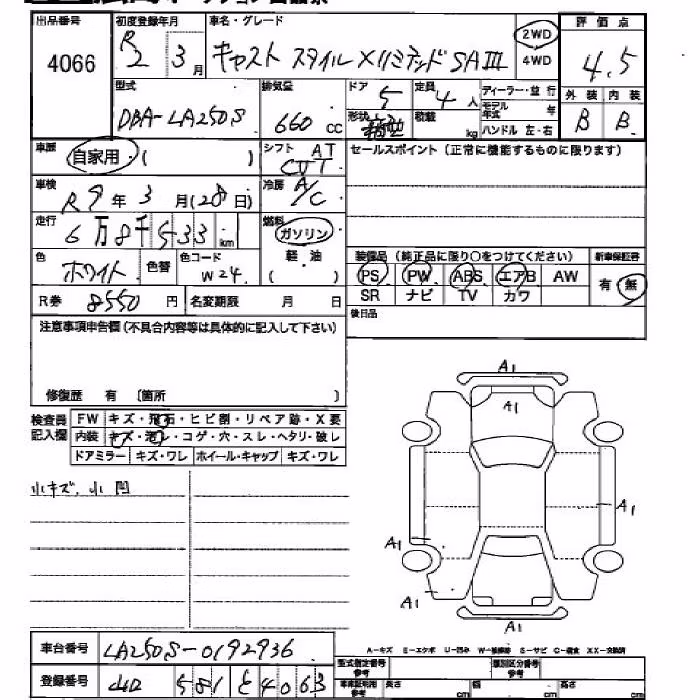 出品番号 4066
初度登録年月 R2 3月
車名・グレード キャスト スタイル XリミテッドSAIII
2WD 4WD
評価点 4.5
型式 DBA-LA250S
排気量 660 cc
ドア 5
形状
定員 4人
積載 kg
ディーラー・並行
モデル年式 年
ハンドル 左・右
外装 B
内装 B
車歴 自家用・( )
シフト AT CVT
セールスポイント(正常に機能するものに限ります)
車検 R9年3月(28日)
冷房 A/C
走行 6万8千533km
燃料 ガソリン
軽・油
( )
色 ホワイト 色替
色コード W24
装備品(純正品に限り○をつけてください)
新車保証書
PS PW ABS エアB AW
有・無
SR ナビ TV カワ
R券 8550円
名変期限 月 日
後日品
注意事項申告欄(不具合内容等は具体的に記入して下さい)
修復歴 有 〔箇所 〕
検査員記入欄
FW キズ・飛石・ヒビ割・リペア跡・X要
内装 キズ・汚レ・コゲ・穴・スレ・ヘタリ・破レ
ドアミラー キズ・ワレ ホイール・キャップ キズ・ワレ
小キズ、小凹
A1
A1
A1
A1
A1
A1
A-キズ E-エクボ U-凹み W-補修跡 S-サビ C-腐食 XX-交換済
車台番号 LA250S-0192936
登録番号 581 を 4063
型式指定番号 参考
類別区分番号 参考
車庫証明用 参考
長さ cm
幅 cm
高さ cm